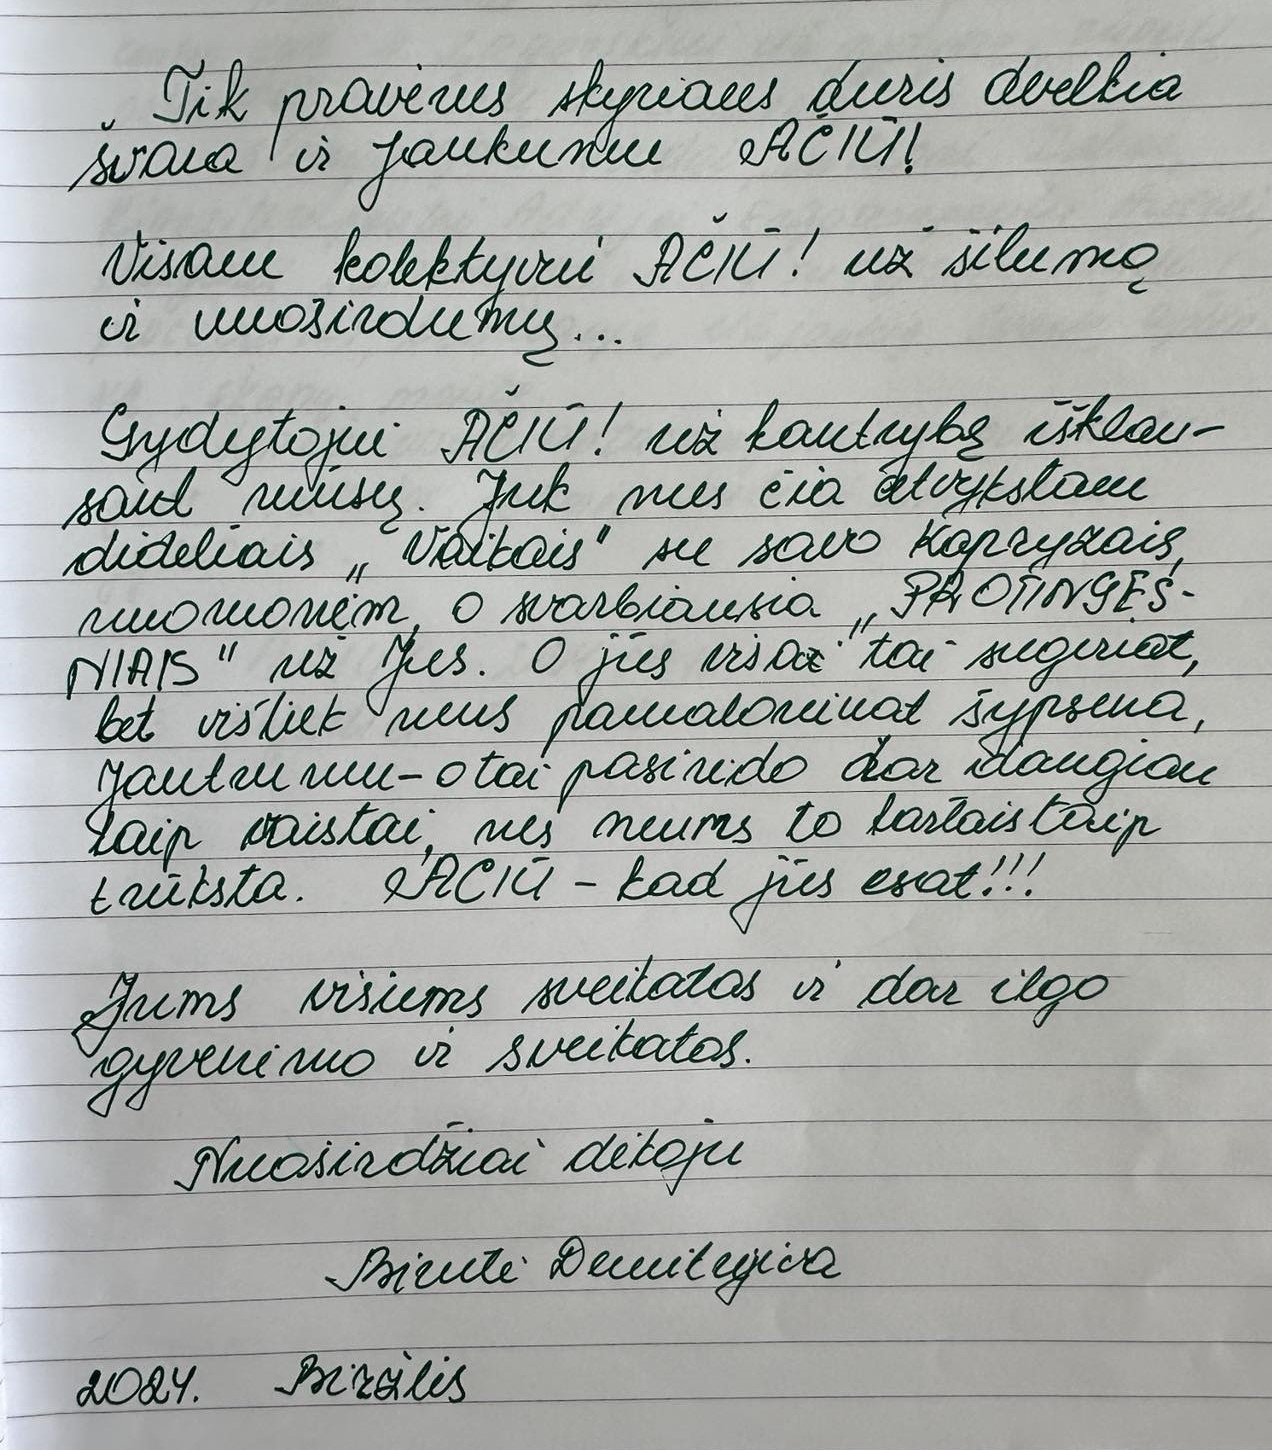 „Tik pravėrus skyriaus duris dvelkia
švara ir jaukumu AČIŪ!
Visam kolektyvui AČIŪ! už šilumą
ir nuoširdumą...
Gydytojui AČIŪ! už kantrybę išklau-
sant mūsų. Juk mes čia atvykstam
dideliais „Vaikais" su savo kaprizais,
nuomonėm, o svarbiausia „PROTINGES-
NIAIS" už Jus. O jūs visa tai sugeriat,
bet višliek mus pamaloninat šypsena,
Jautrumu-o tai pasirodo dar daugiau
taip vaistai, nes mums to kartais taip
trūksta. AČIŪ - kad jūs esat!!!
Jums visiems sveikatos ir dar ilgo
gyvenimo ir sveikatos.
Nuoširdžiai dėkoju
Birutė
2024. Birželis